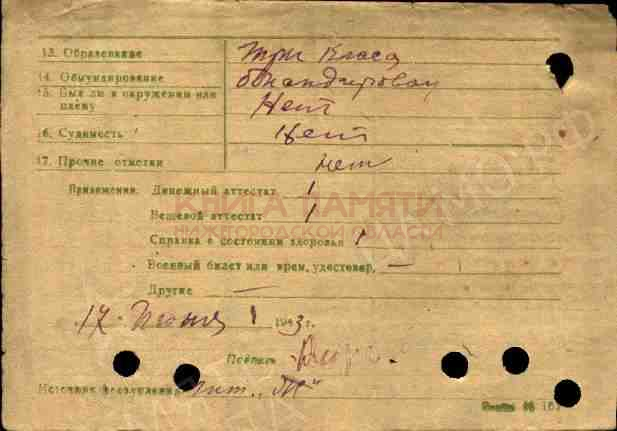 13. Образование Три Класа
14. Обмундирование обмандирован
15. Был ли в окружении или плену Нет
16. Судимость Нет
17. Прочие отметки нет
Приложения. Денежный аттестат 1
КНИГА ПАМЯТИ
Вещевой аттестат 1
НИЖЕГОРОДСКОЙ ОБЛАСТИ
Справка о состоянии здоровья 1
Военный билет или врем. удостовер. —
Другие —
17. Июня 1943 г.
Подпись
Источник поступления „М"